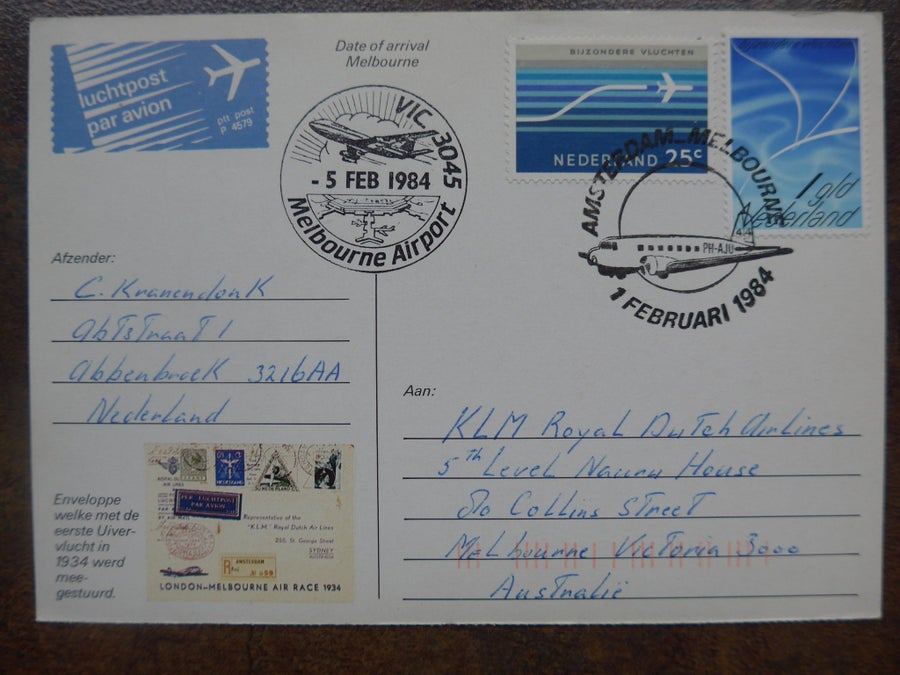 luchtpost
par avion
ptt post
P 4579
Date of arrival
Melbourne
VIC. 3045
- 5 FEB 1984
Melbourne Airport
BIJZONDERE VLUCHTEN
NEDERLAND 25c
1 gld
Nederland
AMSTERDAM-MELBOURNE
PH-AJU
44
1 FEBRUARI 1984
Afzender:
C. Kranendonk
Abtstraat 1
Abbenbroek 3216AA
Nederland
Aan:
KLM Royal Dutch Airlines
5th Level Nauru House
80 Collins Street
Melbourne Victoria 3000
Australië
Enveloppe
welke met de
eerste Uiver-
vlucht in
1934 werd
mee-
gestuurd.
PER LUCHTPOST
PAR AVION
Representative of the
"K.L.M." Royal Dutch Air Lines
255, St. George Street
SYDNEY
AUSTRALIA
AMSTERDAM
LONDON-MELBOURNE AIR RACE 1934